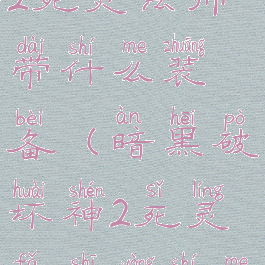 2死灵法师
dài shí me zhuāng
带什么装
bèi àn hēi pò
备(暗黑破
huài shén sǐ líng
坏神2死灵
fǎ shī yòng shí me